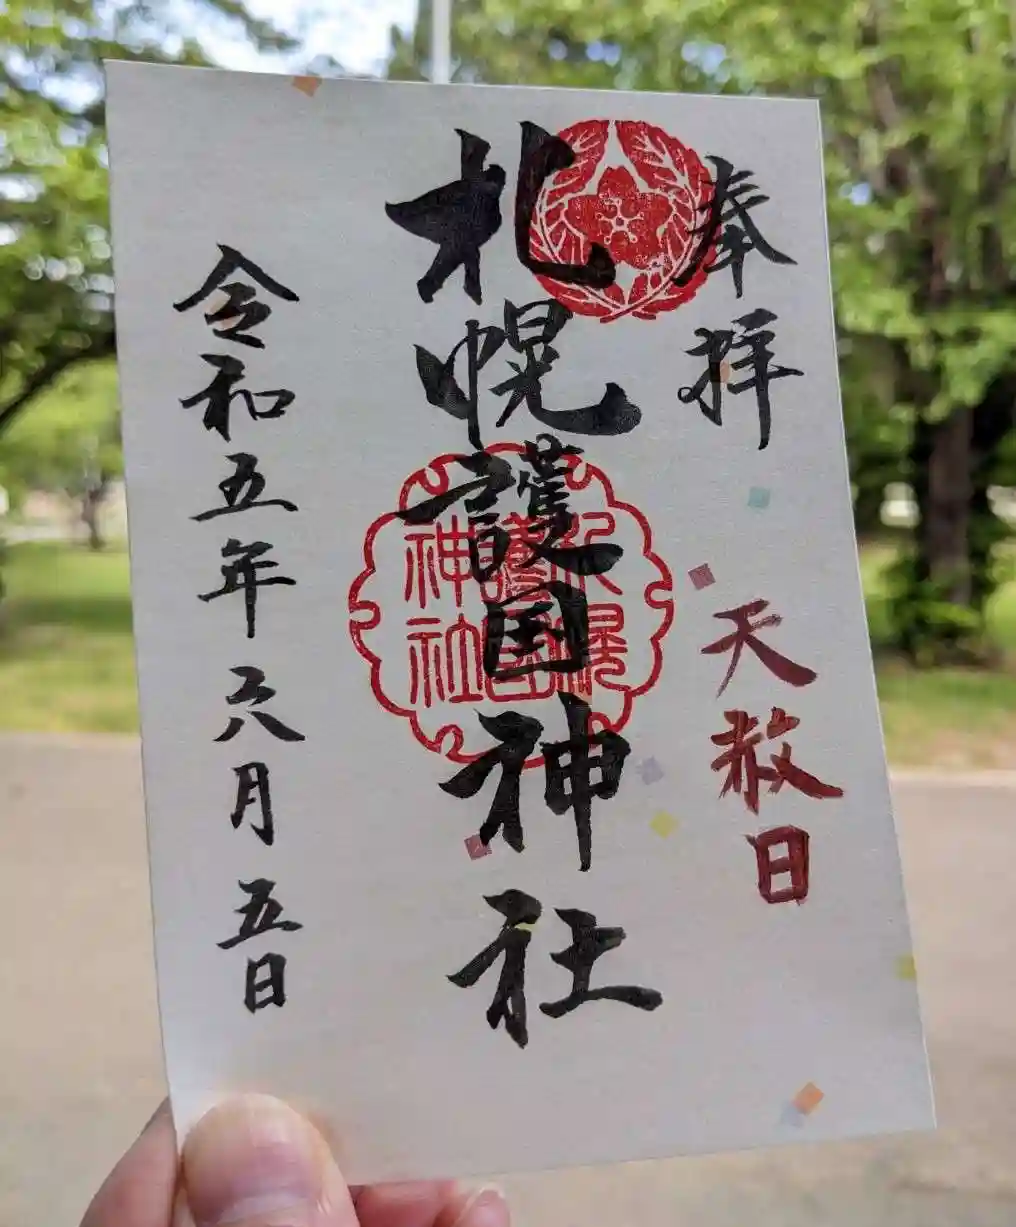 奉拝
天赦日
札幌護国神社
札幌
護国
神社
令和五年六月五日